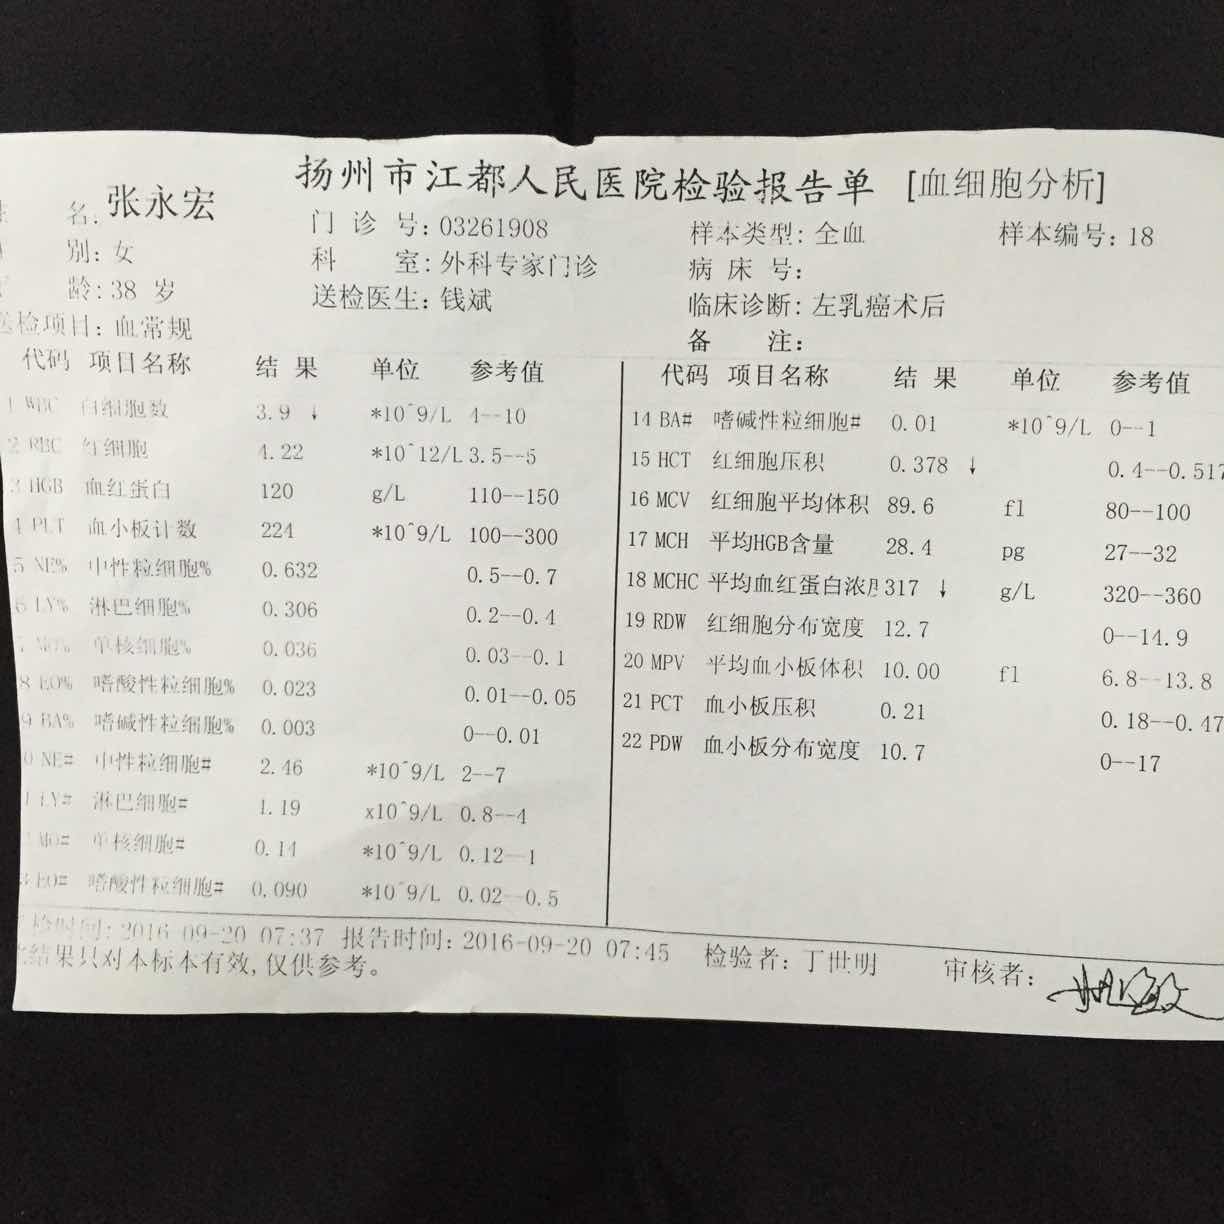 扬州市江都人民医院检验报告单 [血细胞分析]
名: 张永宏 门 诊 号: 03261908 样本类型: 全血 样本编号: 18
别: 女 科 室: 外科专家门诊 病 床 号:
龄: 38 岁 送检医生: 钱斌 临床诊断: 左乳癌术后
送检项目: 血常规 备 注:
代码 项目名称 结 果 单位 参考值
1 WBC 白细胞数 3.9 ↓ *10^9/L 4--10
2 RBC 红细胞 4.22 *10^12/L 3.5--5
3 HGB 血红蛋白 120 g/L 110--150
4 PLT 血小板计数 224 *10^9/L 100--300
5 NE% 中性粒细胞% 0.632 0.5--0.7
6 LY% 淋巴细胞% 0.306 0.2--0.4
7 MO% 单核细胞% 0.036 0.03--0.1
8 EO% 嗜酸性粒细胞% 0.023 0.01--0.05
9 BA% 嗜碱性粒细胞% 0.003 0--0.01
0 NE# 中性粒细胞# 2.46 *10^9/L 2--7
1 LY# 淋巴细胞# 1.19 x10^9/L 0.8--4
2 MO# 单核细胞# 0.14 *10^9/L 0.12--1
3 EO# 嗜酸性粒细胞# 0.090 *10^9/L 0.02--0.5
代码 项目名称 结 果 单位 参考值
14 BA# 嗜碱性粒细胞# 0.01 *10^9/L 0--1
15 HCT 红细胞压积 0.378 ↓ 0.4--0.517
16 MCV 红细胞平均体积 89.6 fl 80--100
17 MCH 平均HGB含量 28.4 pg 27--32
18 MCHC 平均血红蛋白浓度 317 ↓ g/L 320--360
19 RDW 红细胞分布宽度 12.7 0--14.9
20 MPV 平均血小板体积 10.00 fl 6.8--13.8
21 PCT 血小板压积 0.21 0.18--0.47
22 PDW 血小板分布宽度 10.7 0--17
检时间: 2016-09-20 07:37 报告时间: 2016-09-20 07:45 检验者: 丁世明 审核者:
结果只对本标本有效,仅供参考。